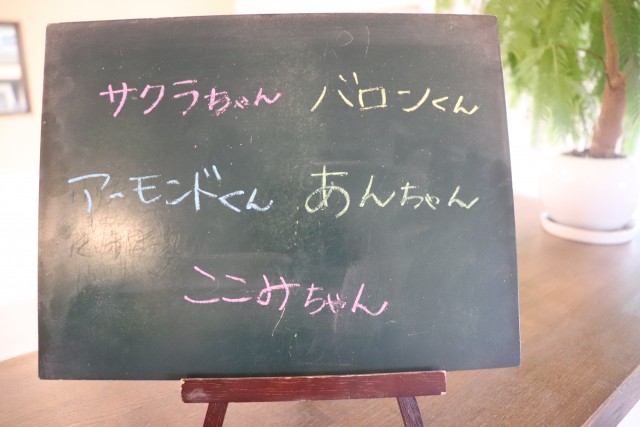 サクラちゃん バロンくん
アーモンドくん あんちゃん
ここみちゃん